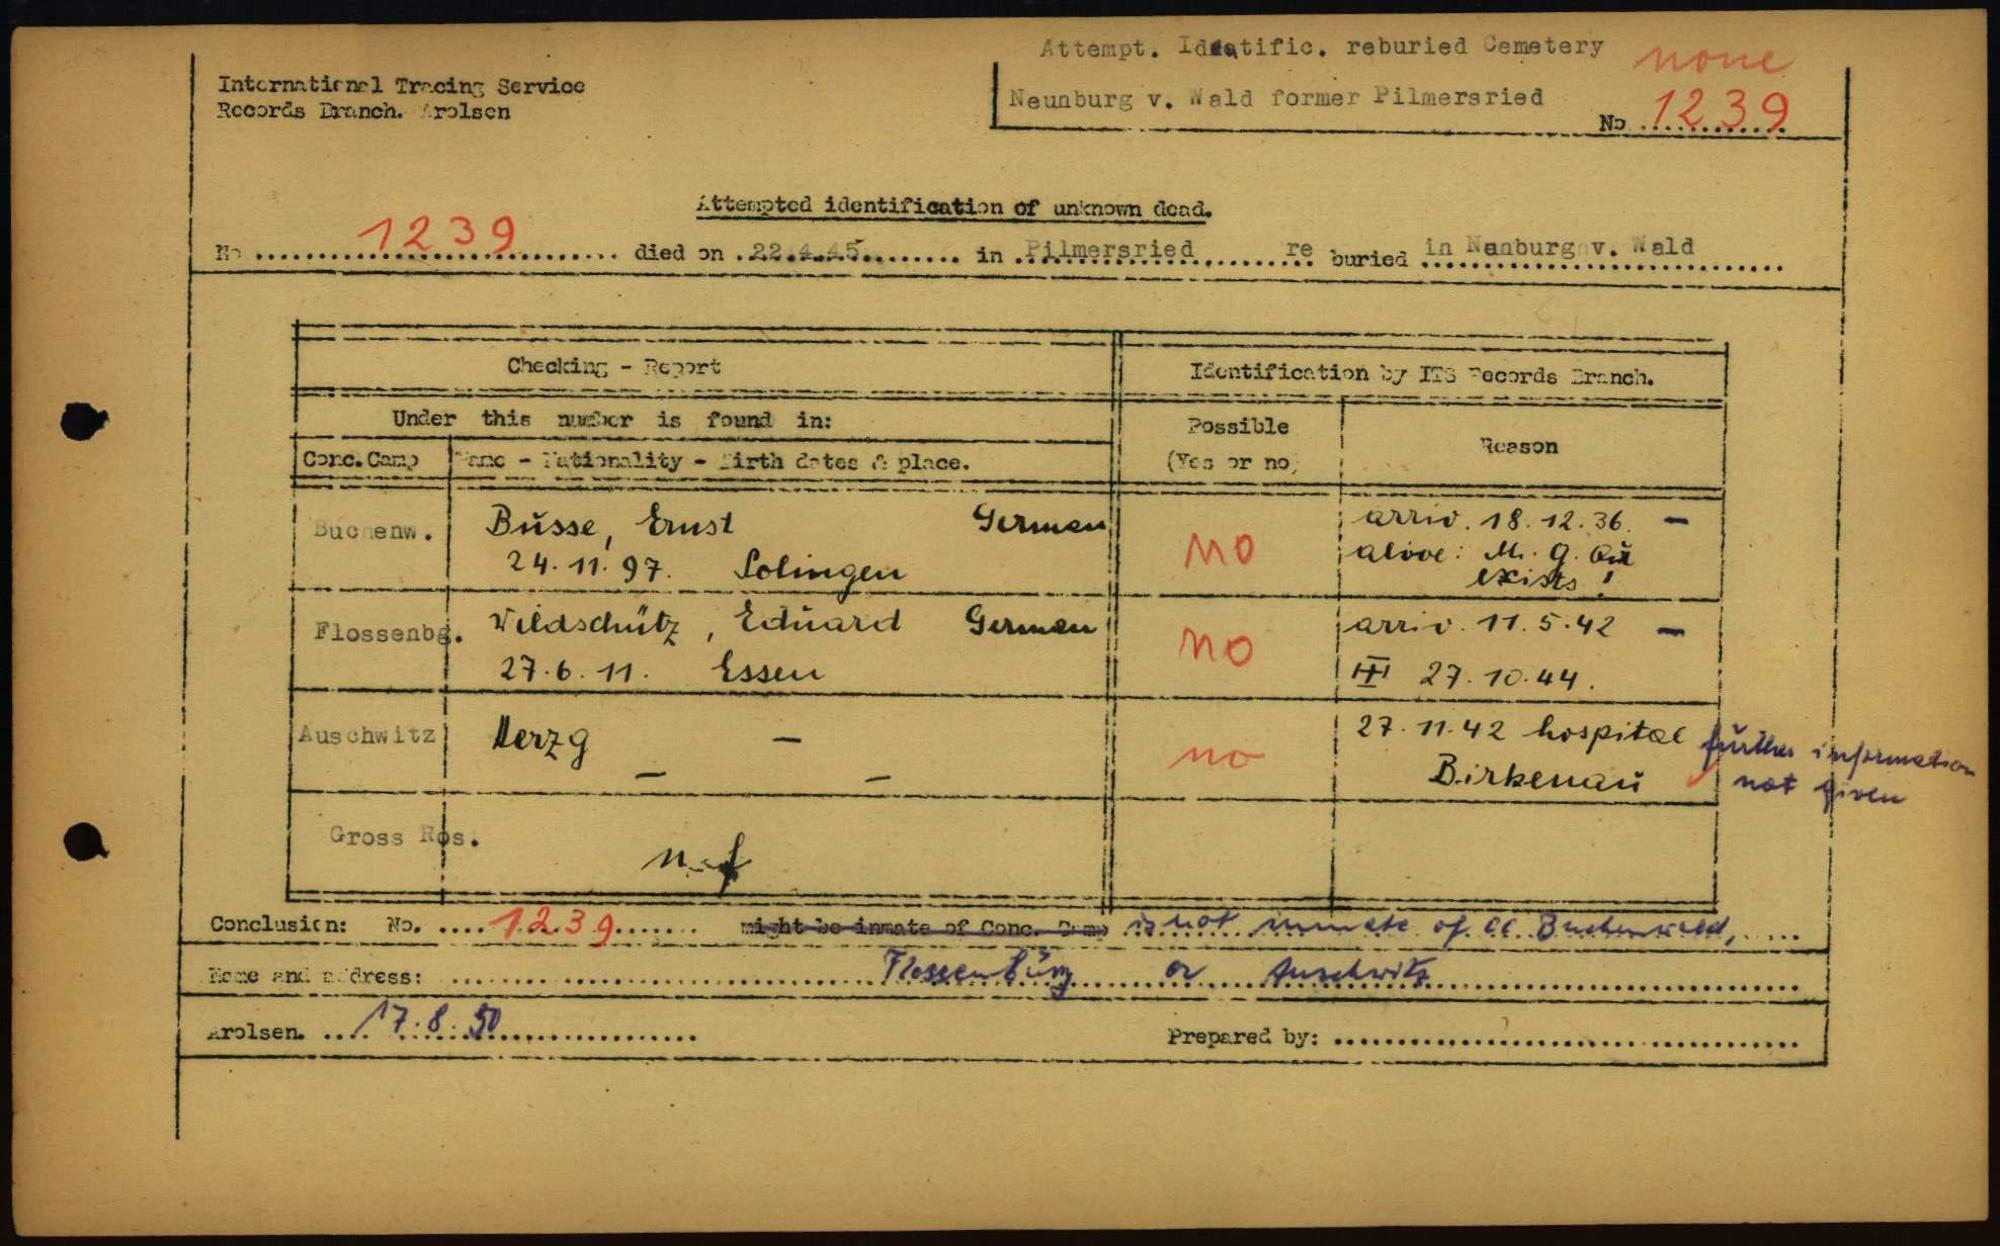 Attempt. Identific. reburied Cemetery none
International Tracing Service
Neunburg v. Wald former Pilmersried
Records Branch. Arolsen
No 1239
Attempted identification of unknown dead.
No 1239 died on 22.4.45 in Pilmersried re buried in Neunburg v. Wald
Checking - Report
Identification by ITS Records Branch.
Under this number is found in:
Possible
(Yes or no)
Reason
Conc.Camp Name - Nationality - Birth dates & place.
Buchenw. Busse, Ernst German
24.11.97. Solingen
no
arriv. 18.12.36. -
alive: M. G.
exists!
Flossenbg. Wildschütz, Eduard German
27.6.11. Essen
no
arriv. 11.5.42 -
27.10.44.
Auschwitz Herzg -
- -
no
27.11.42 hospital
Birkenau
further information
not given
Gross Ros. n.f
Conclusion: No. 1239 might be inmate of Conc. Camp is not inmate of CC. Buchenwald,
Name and address: Flossenbürg or Auschwitz
Arolsen. 17.8.50 Prepared by: